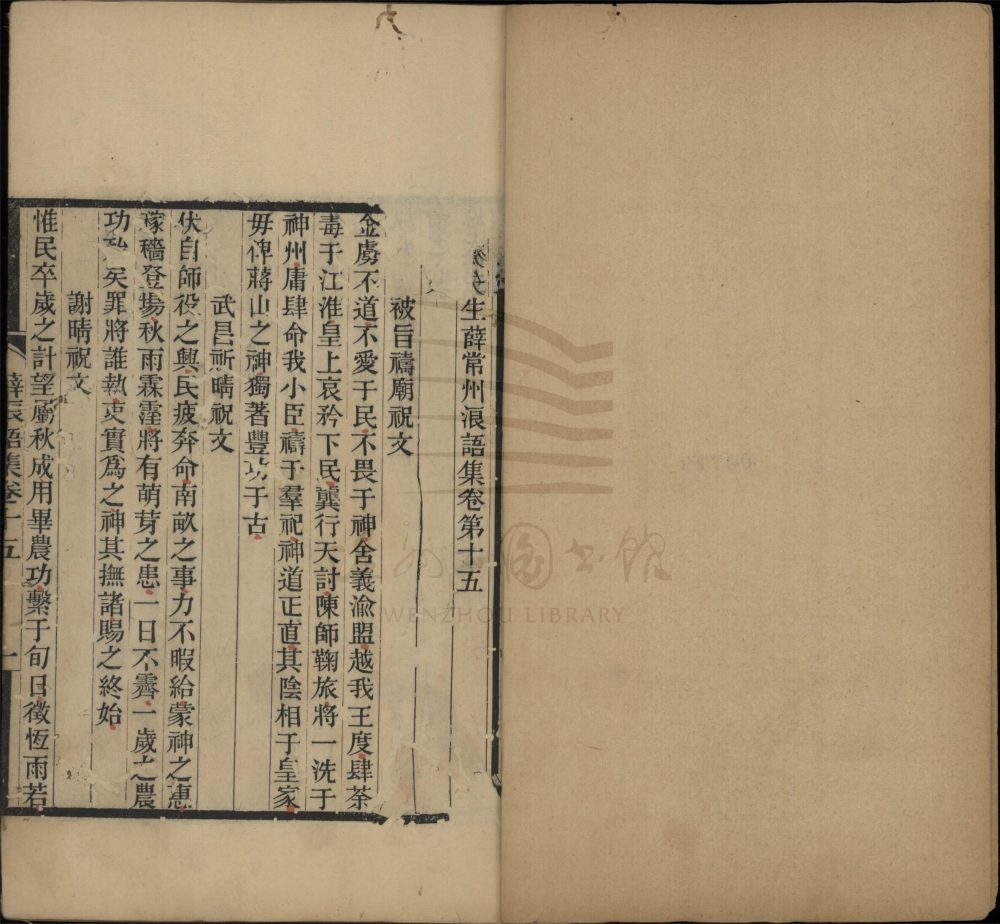 生薛常州浪語集卷第十五
被旨禱廟祝文
金虜不道不愛于民不畏于神舍義渝盟越我王度肆荼
毒于江淮皇上哀矜下民龔行天討陳師鞠旅將一洗于
神州庸肆命我小臣禱于羣祀神道正直其陰相于皇家
毋俾蔣山之神獨著豐功于古
武昌祈晴祝文
伏自師役之興民疲奔命南畝之事力不暇給蒙神之惠
稼穡登場秋雨霖霪將有萌芽之患一日不霽一歲之農
功矣罪將誰執吏實爲之神其撫諸賜之終始
謝晴祝文
惟民卒歲之計望屬秋成用畢農功繫于旬日徵恆雨若
薛常州浪語集卷十五
一
WENZHOU LIBRARY